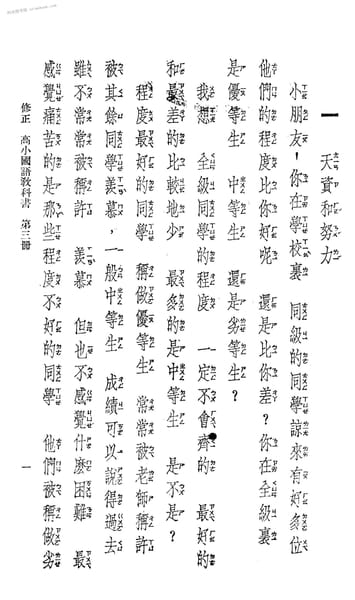 一　天資和努力
小朋友！你在學校裏　同級的同學諒來有好多位
他們的程度比你好呢　還是比你差？你在全級裏
是優等生　中等生　還是劣等生？
我想　全級同學的程度　一定不會齊的　最好的
和最差的比較地少　最多的是中等生　是不是？
程度最好的同學　稱做優等生　常常被老師稱許
被其餘同學羨慕，一般中等生　成績可以說得過去
雖不常常被稱許　羨慕　但也不感覺什麼困難　最
感覺痛苦的是那些程度不好的同學　他們被稱做劣
修正　高小國語教科書　第三冊　一